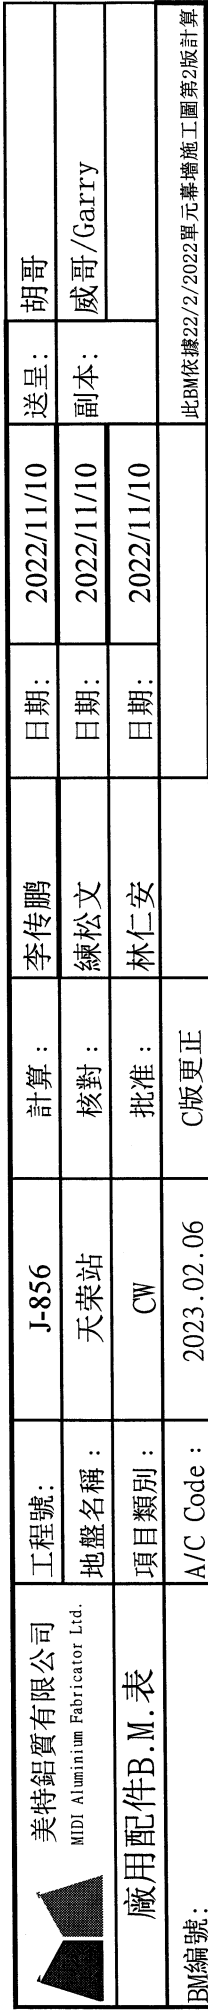 美特鋁質有限公司
MIDI Aluminium Fabricator Ltd.
工程號: J-856 計算: 李传鹏 日期: 2022/11/10 送呈: 胡哥
地盤名稱: 天荣站 核對: 練松文 日期: 2022/11/10 副本: 威哥/Garry
廠用配件B.M.表 項目類別: CW 批准: 林仁安 日期: 2022/11/10
BM編號: A/C Code: 2023.02.06 C版更正 此BM依據22/2/2022單元幕墻施工圖第2版計算